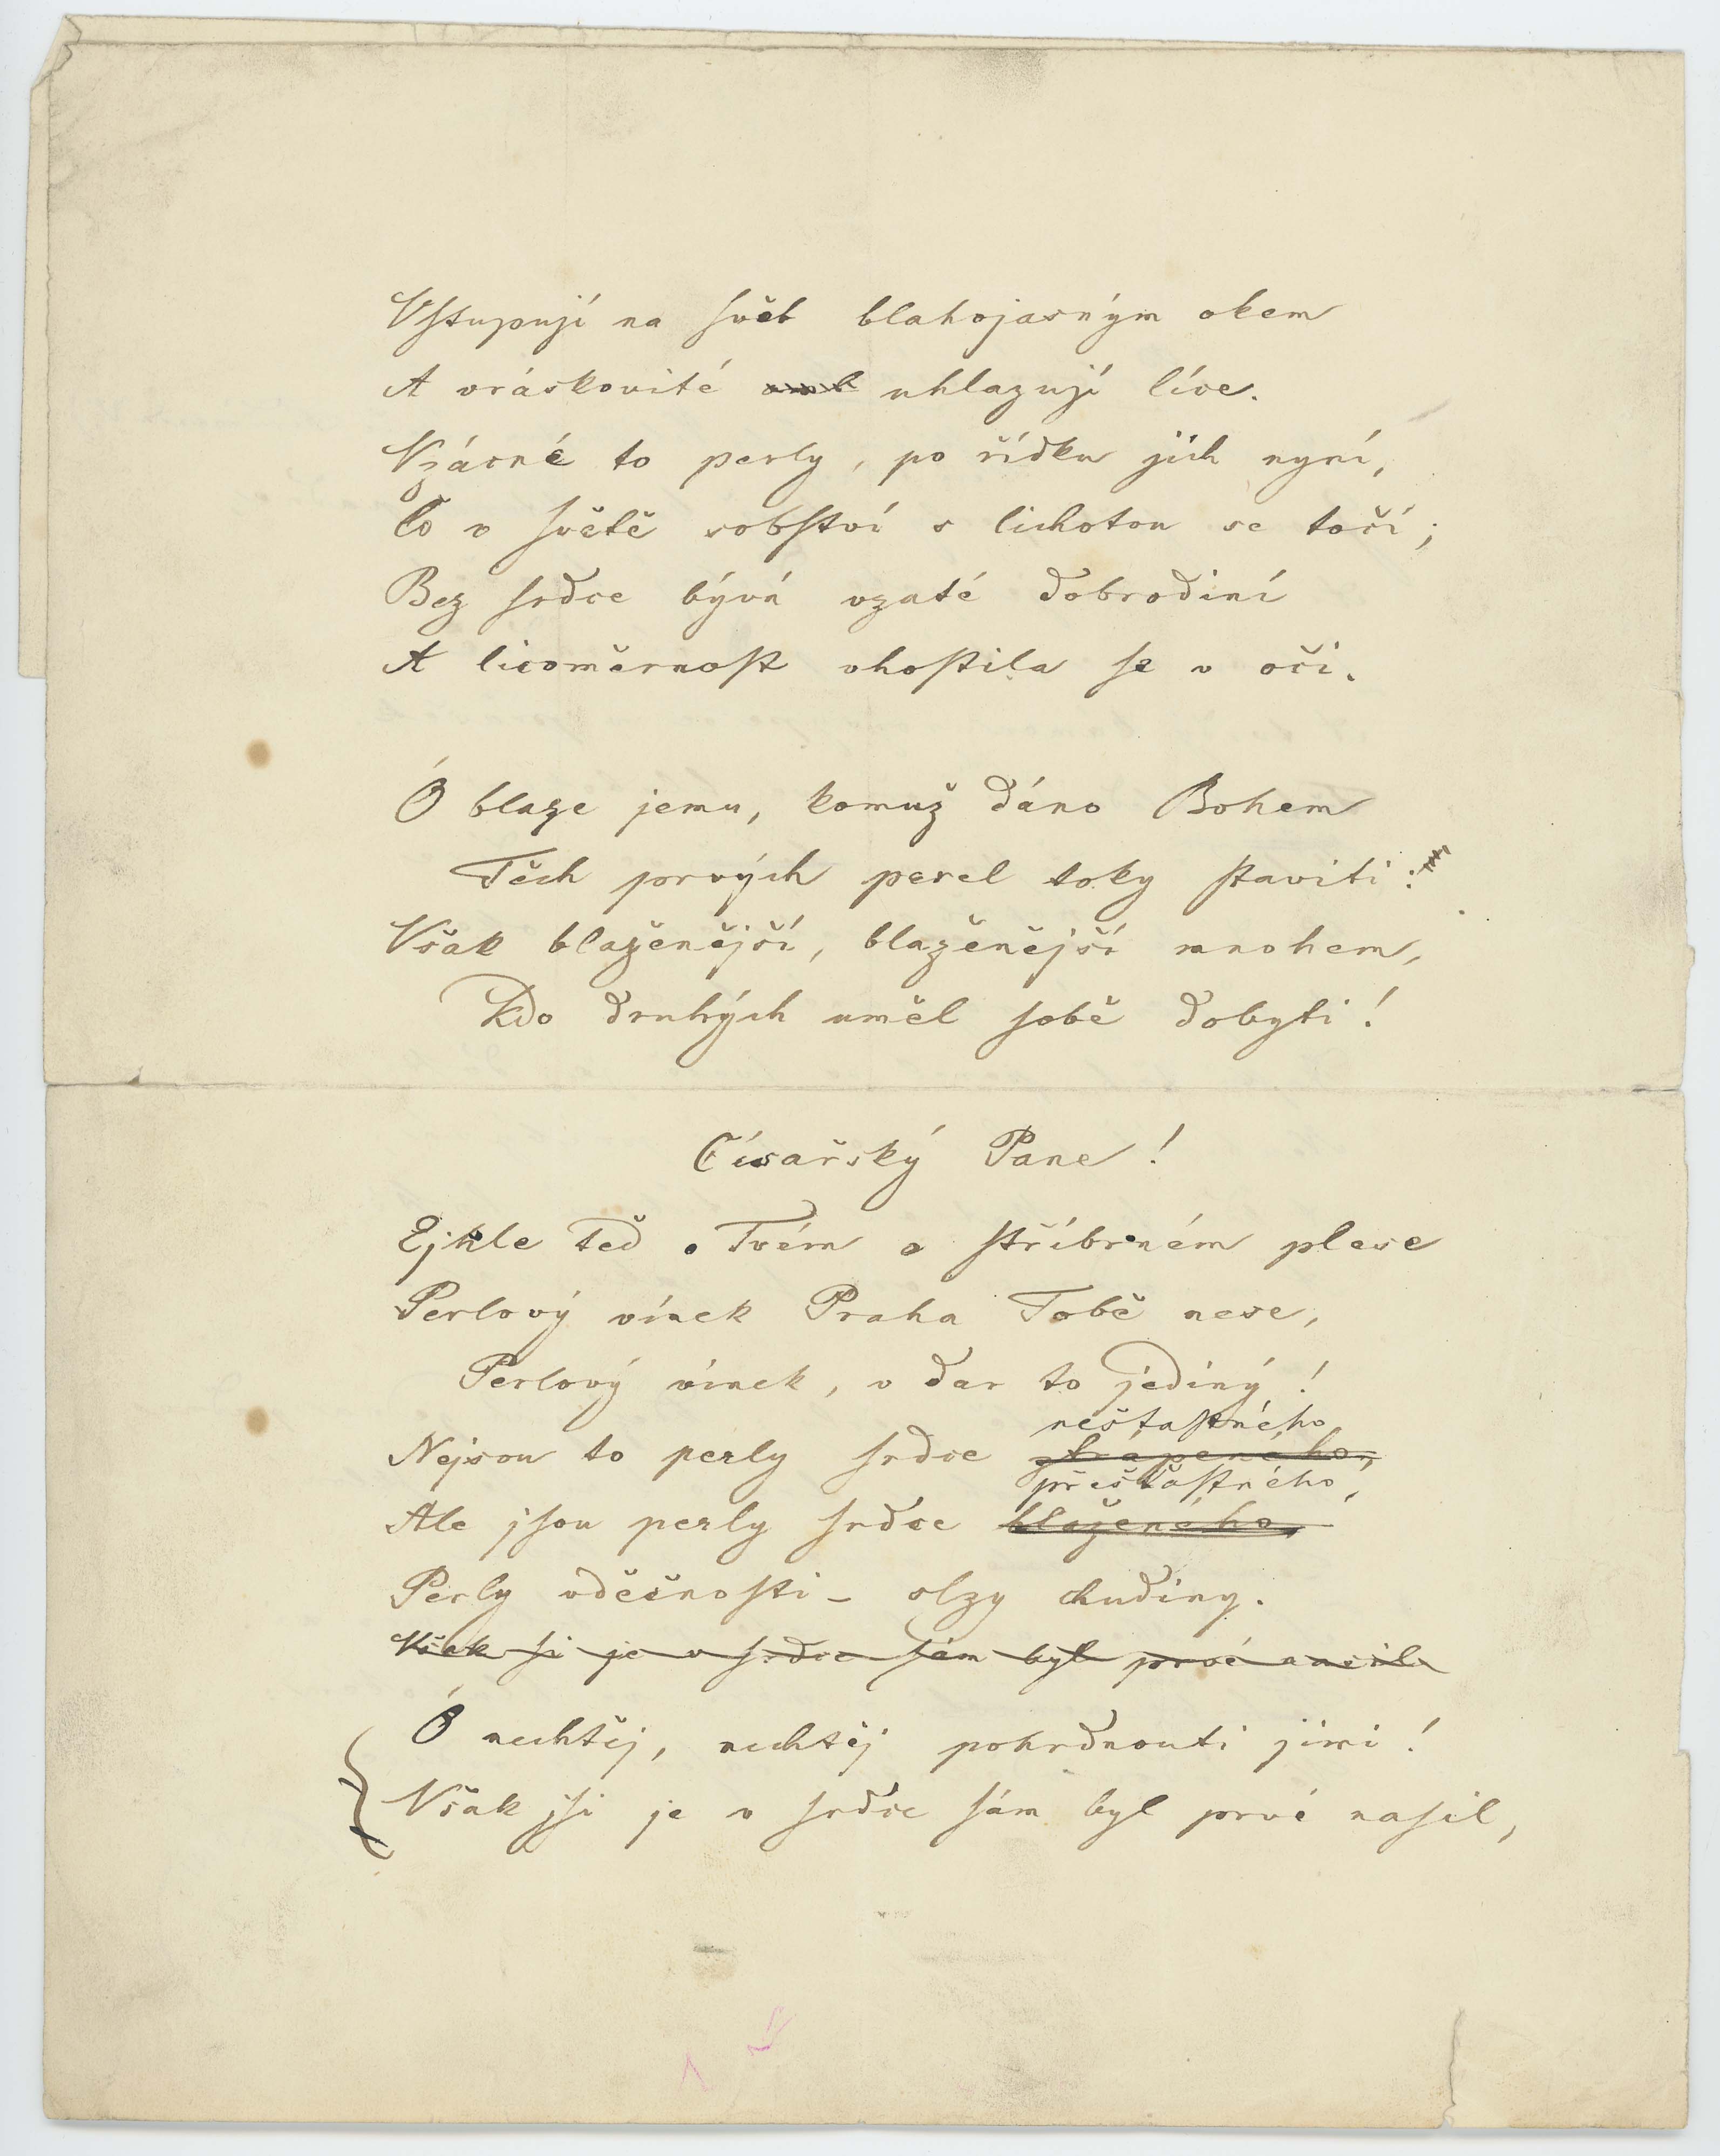 Vstupují na svět blahojasným okem
A vráskovité uhlazují líce.
Vzácné to perly, po řídku jich nyní,
Co v světě sobství s lichotou se točí;
Bez srdce bývá vzaté dobrodiní
A licoměrnost vhostila se v oči.
Ó blaze jemu, komuž dáno Bohem
Těch prvých perel toky staviti:
Však blaženější, blaženější mnohem,
Kdo druhých uměl sobě dobyti!
Císařský Pane!
Ejhle teď o Tvém o stříbrném plese
Perlový vínek Praha Tobě nese,
Perlový vínek, v dar to jediný!
nešťastného
Nejsou to perly srdce ztrápeného,
přešťastného,
Ale jsou perly srdce blaženého,
Perly vděčnosti – slzy chudiny.
Však si je v srdce sám byl prvé nasil
Ó nechtěj, nechtěj pohrdnouti jimi!
Však jsi je v srdce sám byl prvé nasil,